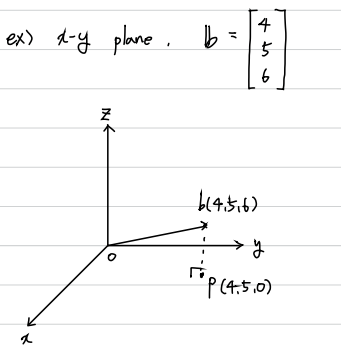 ex) x-y plane. b = [4
5
6]
z
b(4,5,6)
o
y
P(4,5,0)
x